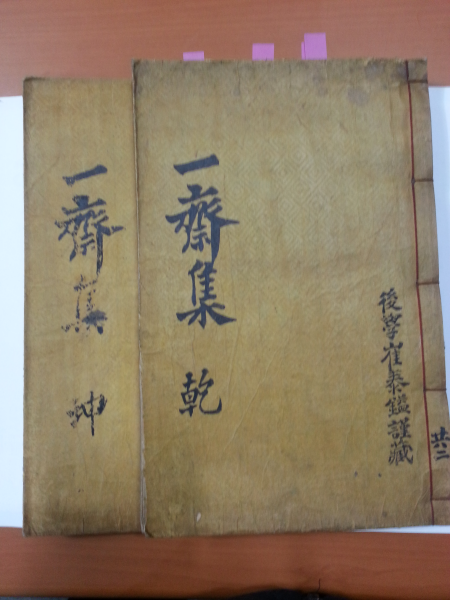 後學崔泰鑑謹藏
共二
一齋集 乾
一齋集 坤